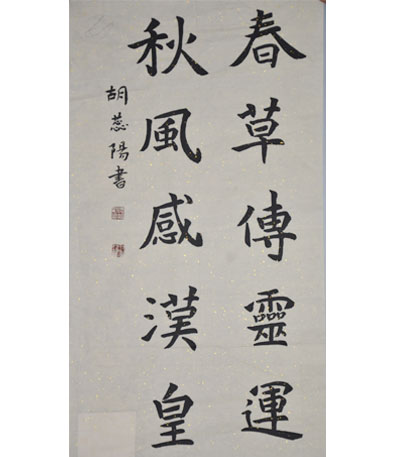 春草傳靈運
秋風感漢皇
胡蕊陽書